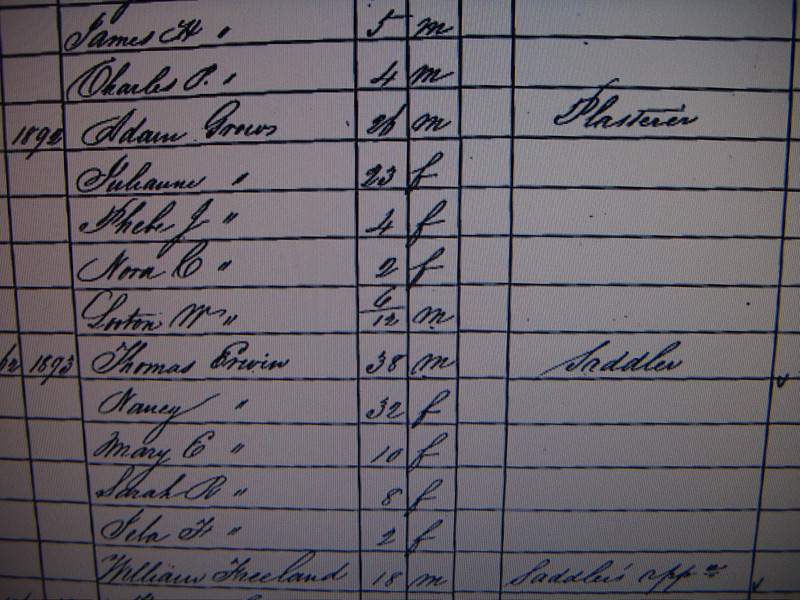 James H " 5 m
Charles P. " 4 m
1892 Adam Grows 26 m Plasterer
Julianne " 23 f
Phebe J " 4 f
Nora C " 2 f
Loston W " 6/12 m
1893 Thomas Erwin 38 m Saddler
Nancy " 32 f
Mary E " 10 f
Sarah R " 8 f
Lela F " 2 f
William Freeland 18 m Saddler's app